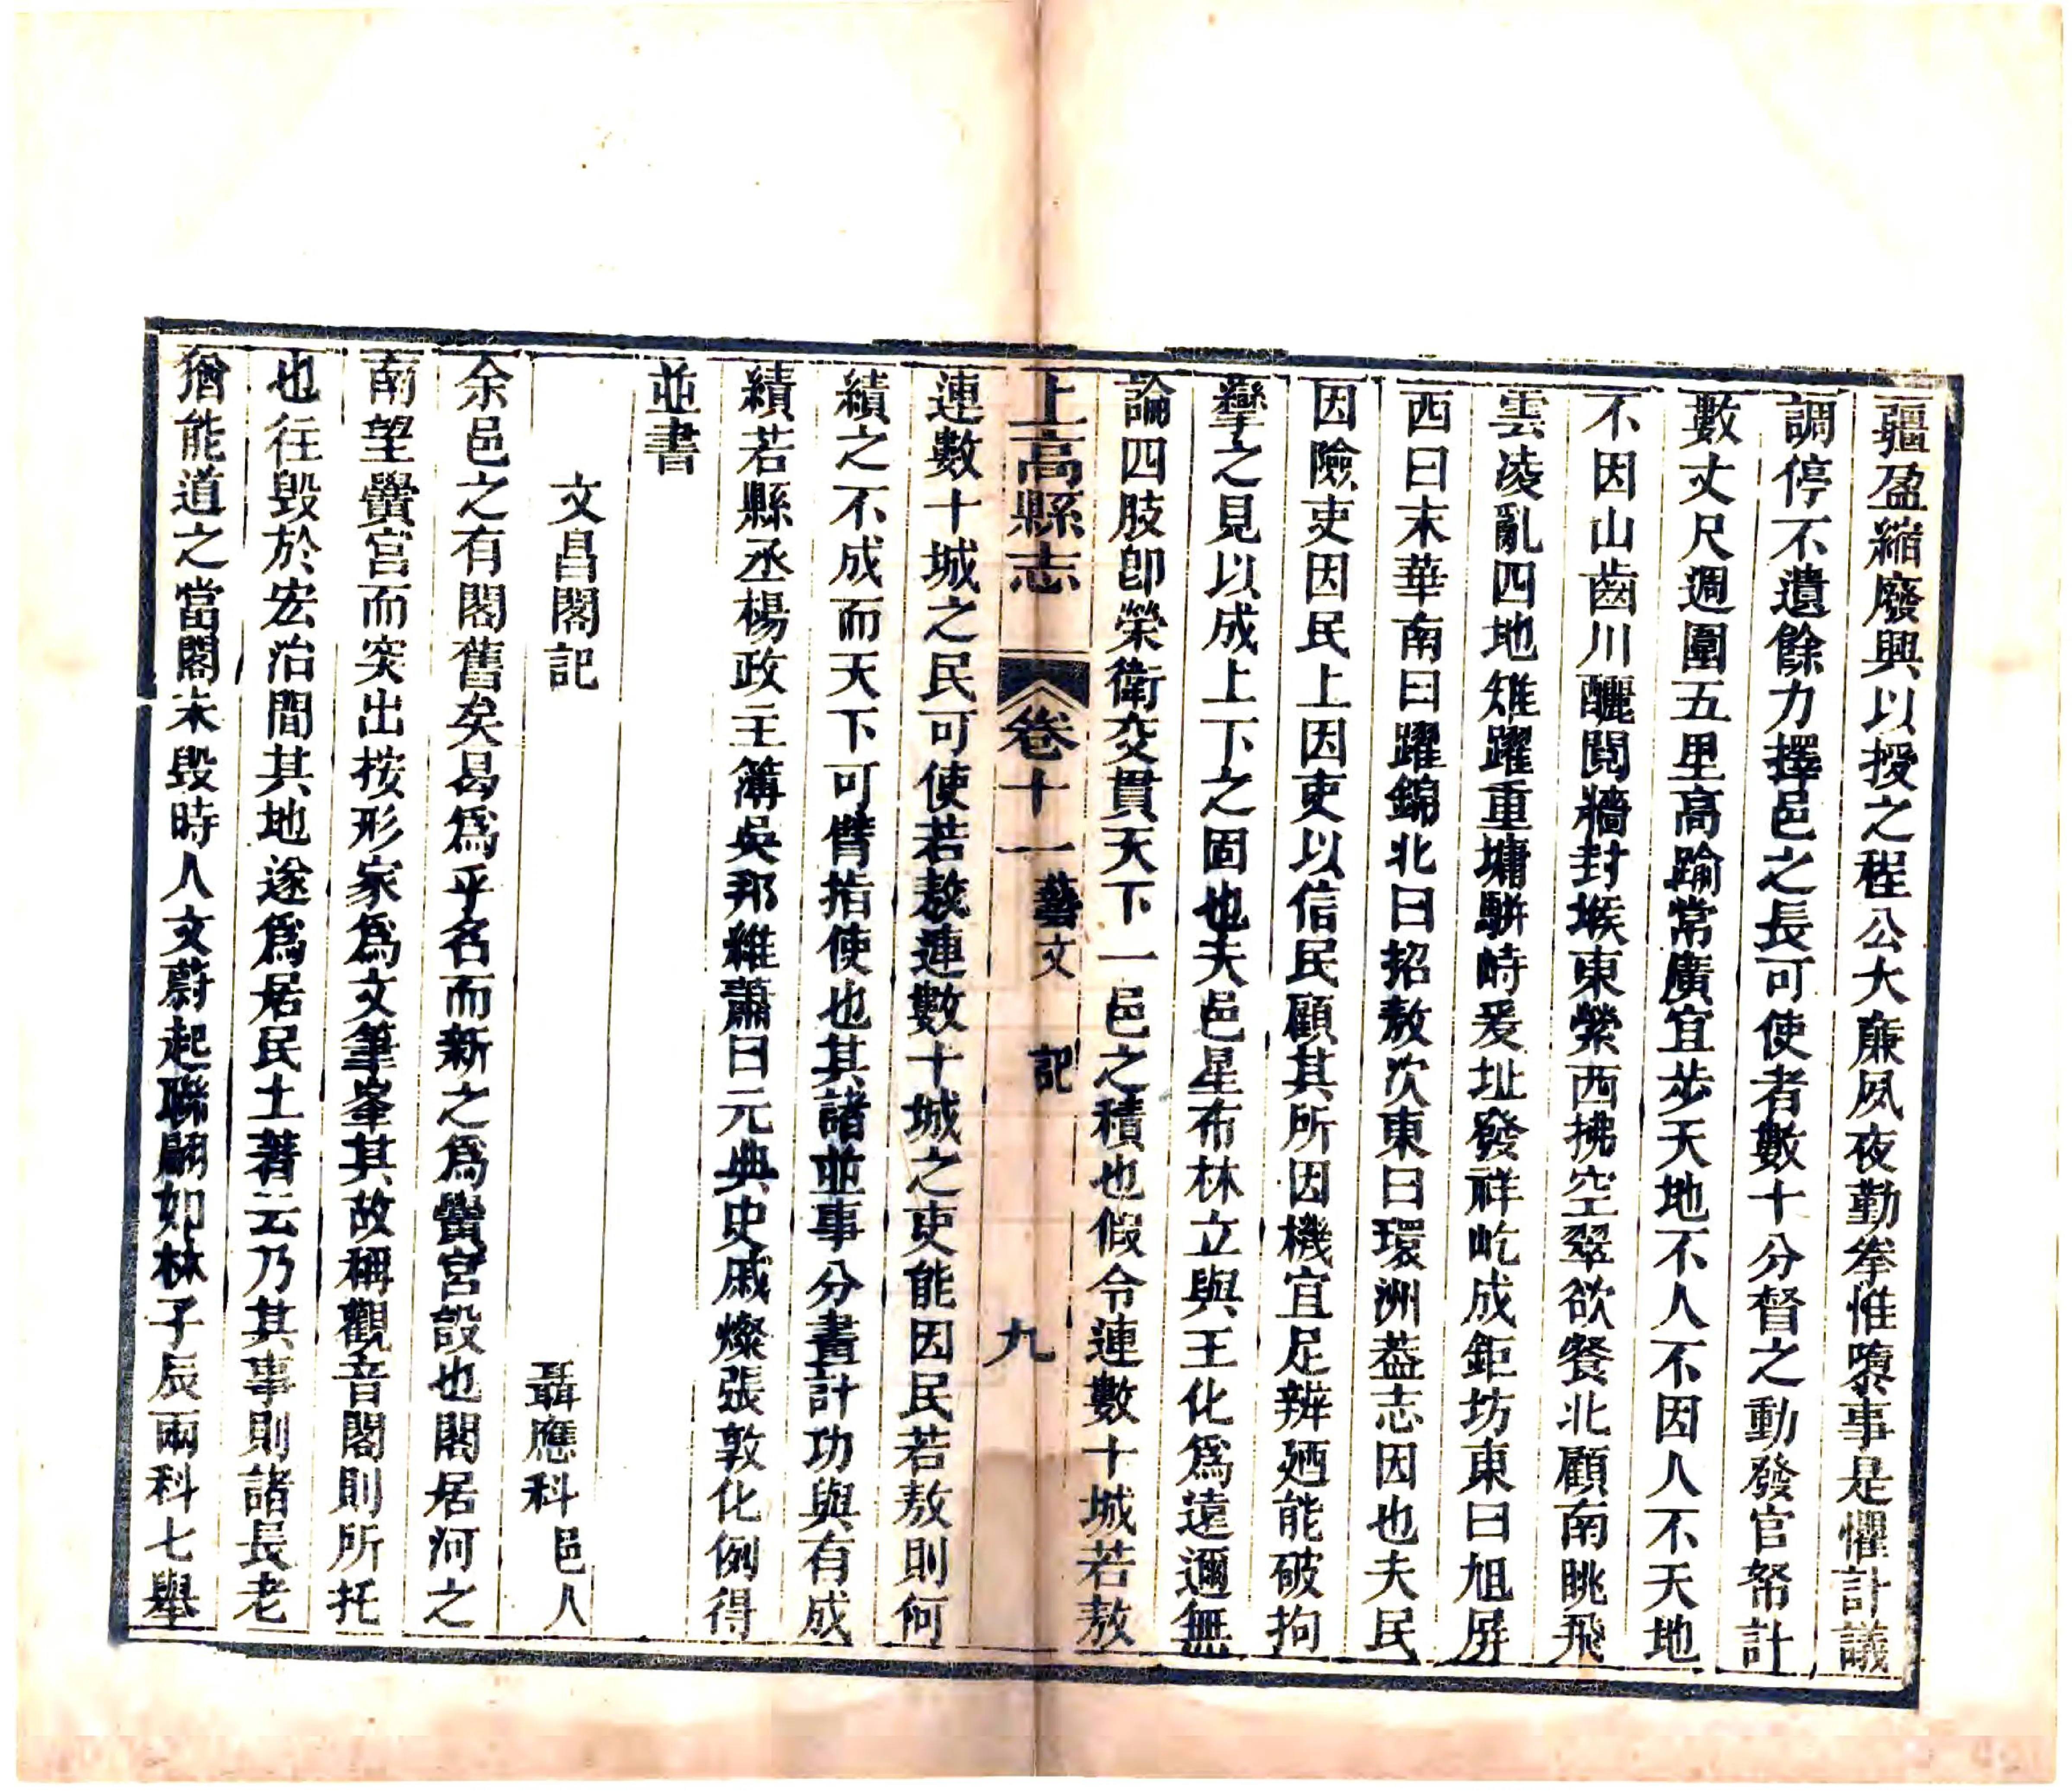 疆盈縮廢興以授之程公大廉夙夜勤拳惟隳事是懼計議
調停不遺餘力擇邑之長可使者數十分督之動發官帑計
數丈尺週圍五里高踰常廣宜步天地不人不因人不天地
不因山齒川釃閱牆封堠東縈西拂空翠欲餐北顧南眺飛
雲凌亂四地雉躍重墉駢峙爰址發祥屹成鉅坊東曰旭屏
西曰末華南曰躍錦北曰招敖次東曰環洲葢志因也夫民
因險吏因民上因吏以信民顧其所因機宜足辨廼能破拘
攣之見以成上下之固也夫邑星布林立與王化爲遠邇無
論四肢卽榮衛交貫天下一邑之積也假令連數十城若敖
上高縣志 卷十一 藝文 記 九
連數十城之民可使若敖連數十城之吏能因民若敖則何
績之不成而天下可臂指使也其諸並事分晝計功與有成
績若縣丞楊政主簿吳邦維蕭曰元典史戚燦張敦化例得
並書
文昌閣記 聶應科邑人
余邑之有閣舊矣曷爲乎名而新之爲黌宮設也閣居河之
南望黌宮而突出按形家爲文筆峯其故稱觀音閣則所托
也往毀於宏治間其地遂爲居民土著云乃其事則諸長老
猶能道之當閣未毀時人文蔚起聯翩如林子辰兩科七舉